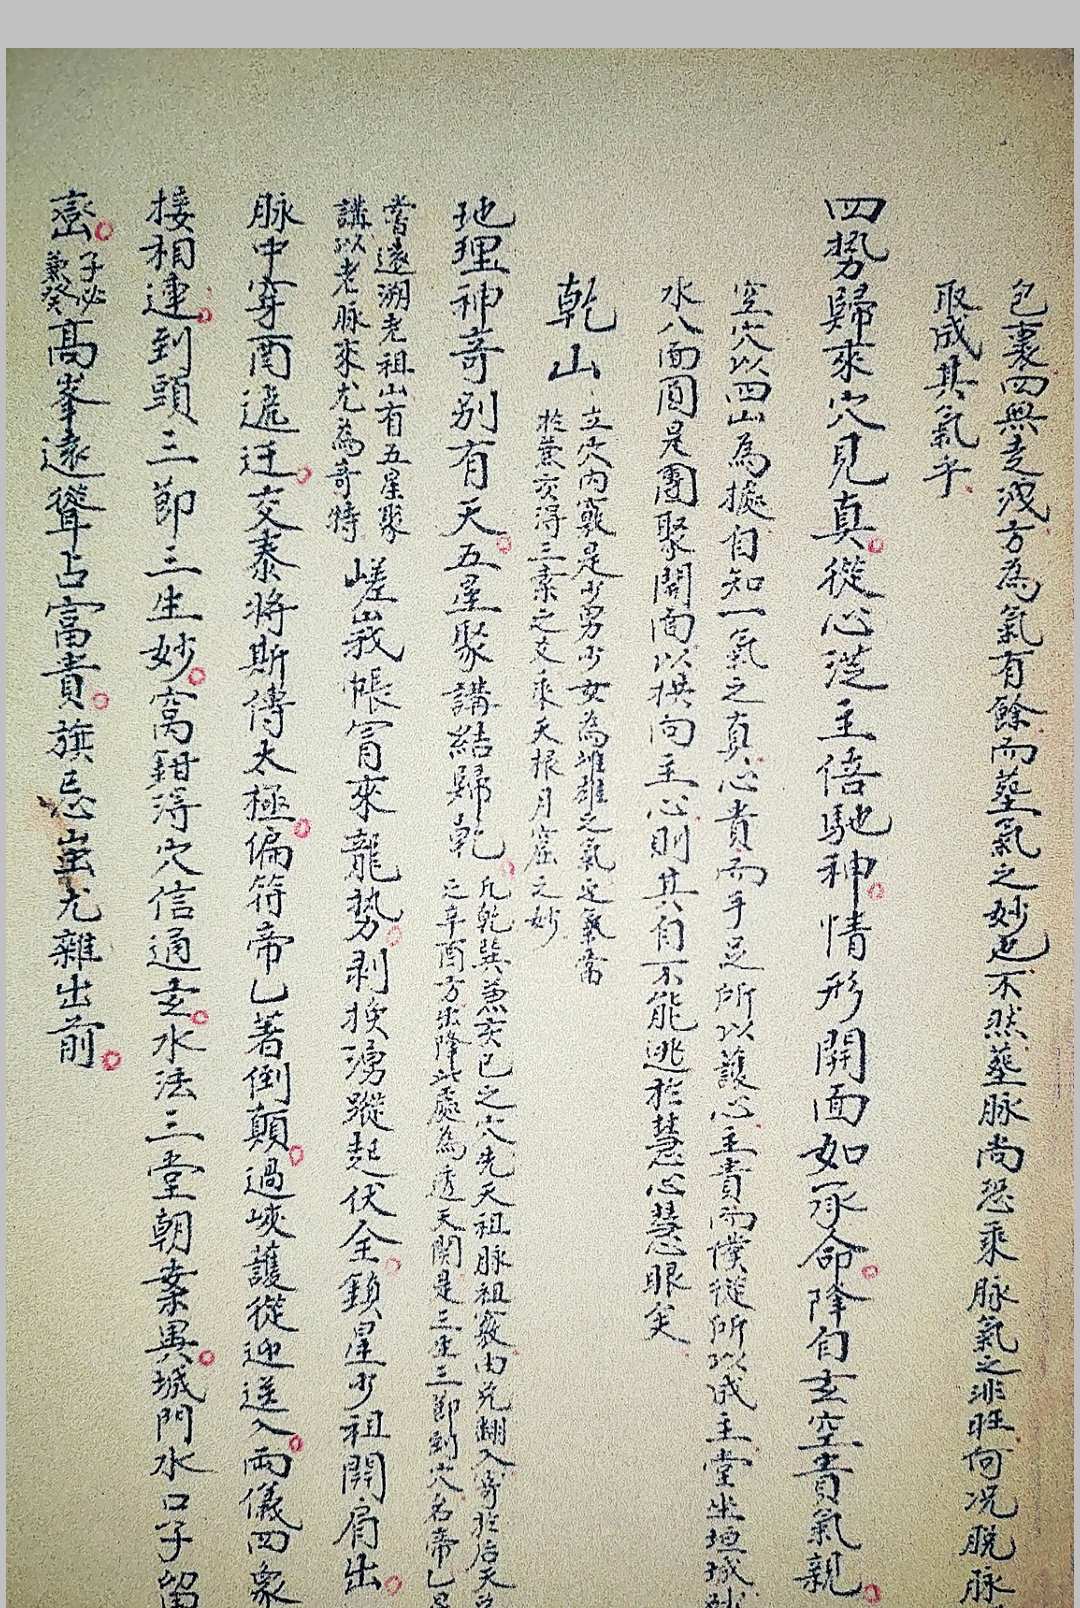 包裹四無走洩方為氣有餘而葬氣之妙也不然葬脈尚恐乘脈氣之非旺何况脫脈
取成其氣乎
四势歸來穴見真從心從主倍馳神情形開面如承命降自玄空貴氣親
空穴以四山為據自知一氣之真心貴而手足所以護心主貴而僕從所以成主堂坐垣城
水八面圓是團聚開面以拱向主心則其自不能逃於慧心慧眼矣
乾山
立穴內竅是少男少女為雌雄之氣迎氣當
於兼亥得三素之交乘天根月窟之妙
地理神奇別有天五星聚講結歸乾
凡乾巽兼亥巳之穴先天祖脉祖竅由兌翻入寄於后天
辛酉方出降此處為透天関是三生三節到穴名帝乙
嘗遠溯老祖山有五星聚
講以老脉來尤為奇特
嵯峩帳冐來龍势剥换湧蹤起伏全鎖星少祖開肩出
脉中穿酉遞迂交泰将斯傳太極偏符帝乙著倒顛過峽護從迎送入両儀四象
接相連到頭三節三生妙窩鉗得穴信通玄水法三堂朝案異城門水口子留
巒
子必
兼癸
高峯遠聳占富貴旗忌崑尤雜出前